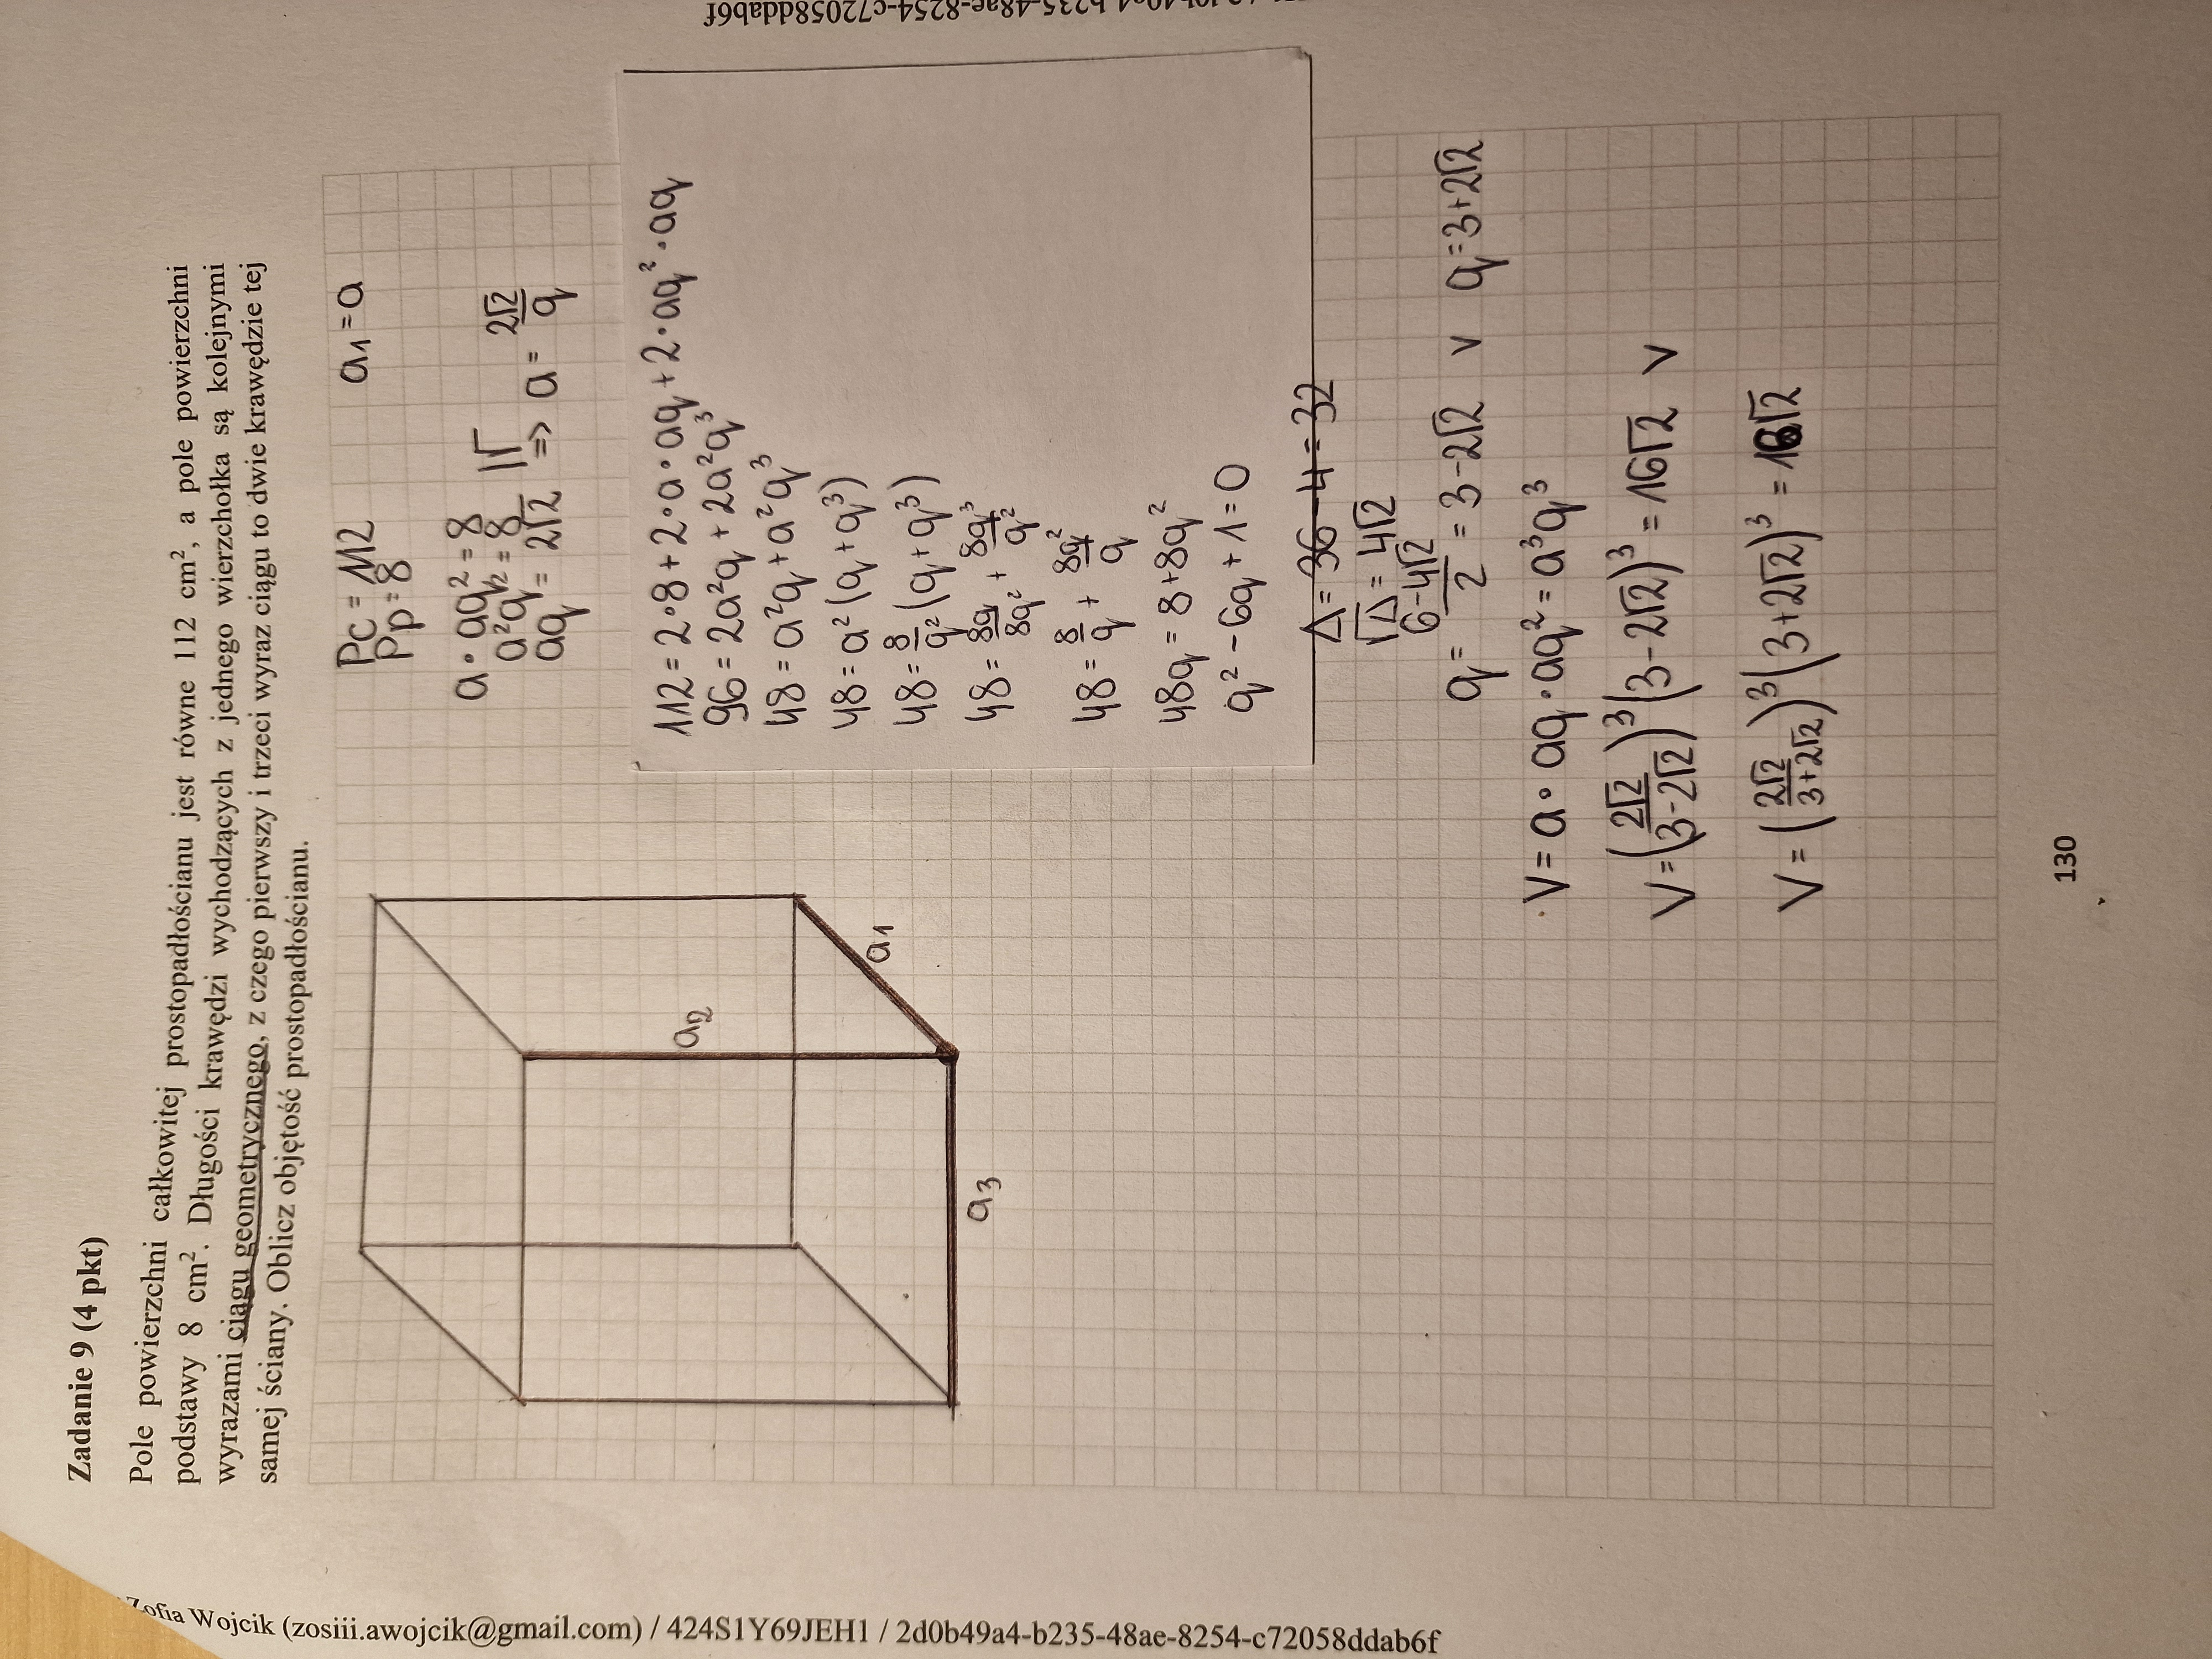 Zadanie 9 (4 pkt)
Pole powierzchni całkowitej prostopadłościanu jest równe 112 cm², a pole powierzchni
podstawy 8 cm². Długości krawędzi wychodzących z jednego wierzchołka są kolejnymi
wyrazami ciągu geometrycznego, z czego pierwszy i trzeci wyraz ciągu to dwie krawędzie tej
samej ściany. Oblicz objętość prostopadłościanu.
Pc = 112 a₁ = a
Pp = 8
a · aq² = 8
a²q² = 8 |√
aq = 2√2 => a = 2√2/q
112 = 2·8 + 2·a·aq + 2·aq²·aq
96 = 2a²q + 2a²q³
48 = a²q + a²q³
48 = a²(q + q³)
48 = 8/q² (q + q³)
48 = 8q/8q² + 8q³/q²
48 = 8/q + 8q²/q
48q = 8 + 8q²
q² - 6q + 1 = 0
Δ = 36 - 4 = 32
√Δ = 4√2
q = (6-4√2)/2 = 3-2√2 v q = 3+2√2
V = a · aq · aq² = a³q³
V = (2√2/(3-2√2))³(3-2√2)³ = 16√2 v
V = (2√2/(3+2√2))³(3+2√2)³ = 16√2
a₁
a₂
a₃
130
Zofia Wojcik (zosiii.awojcik@gmail.com) / 424S1Y69JEH1 / 2d0b49a4-b235-48ae-8254-c72058ddab6f
b235-48ae-8254-c72058ddab6f